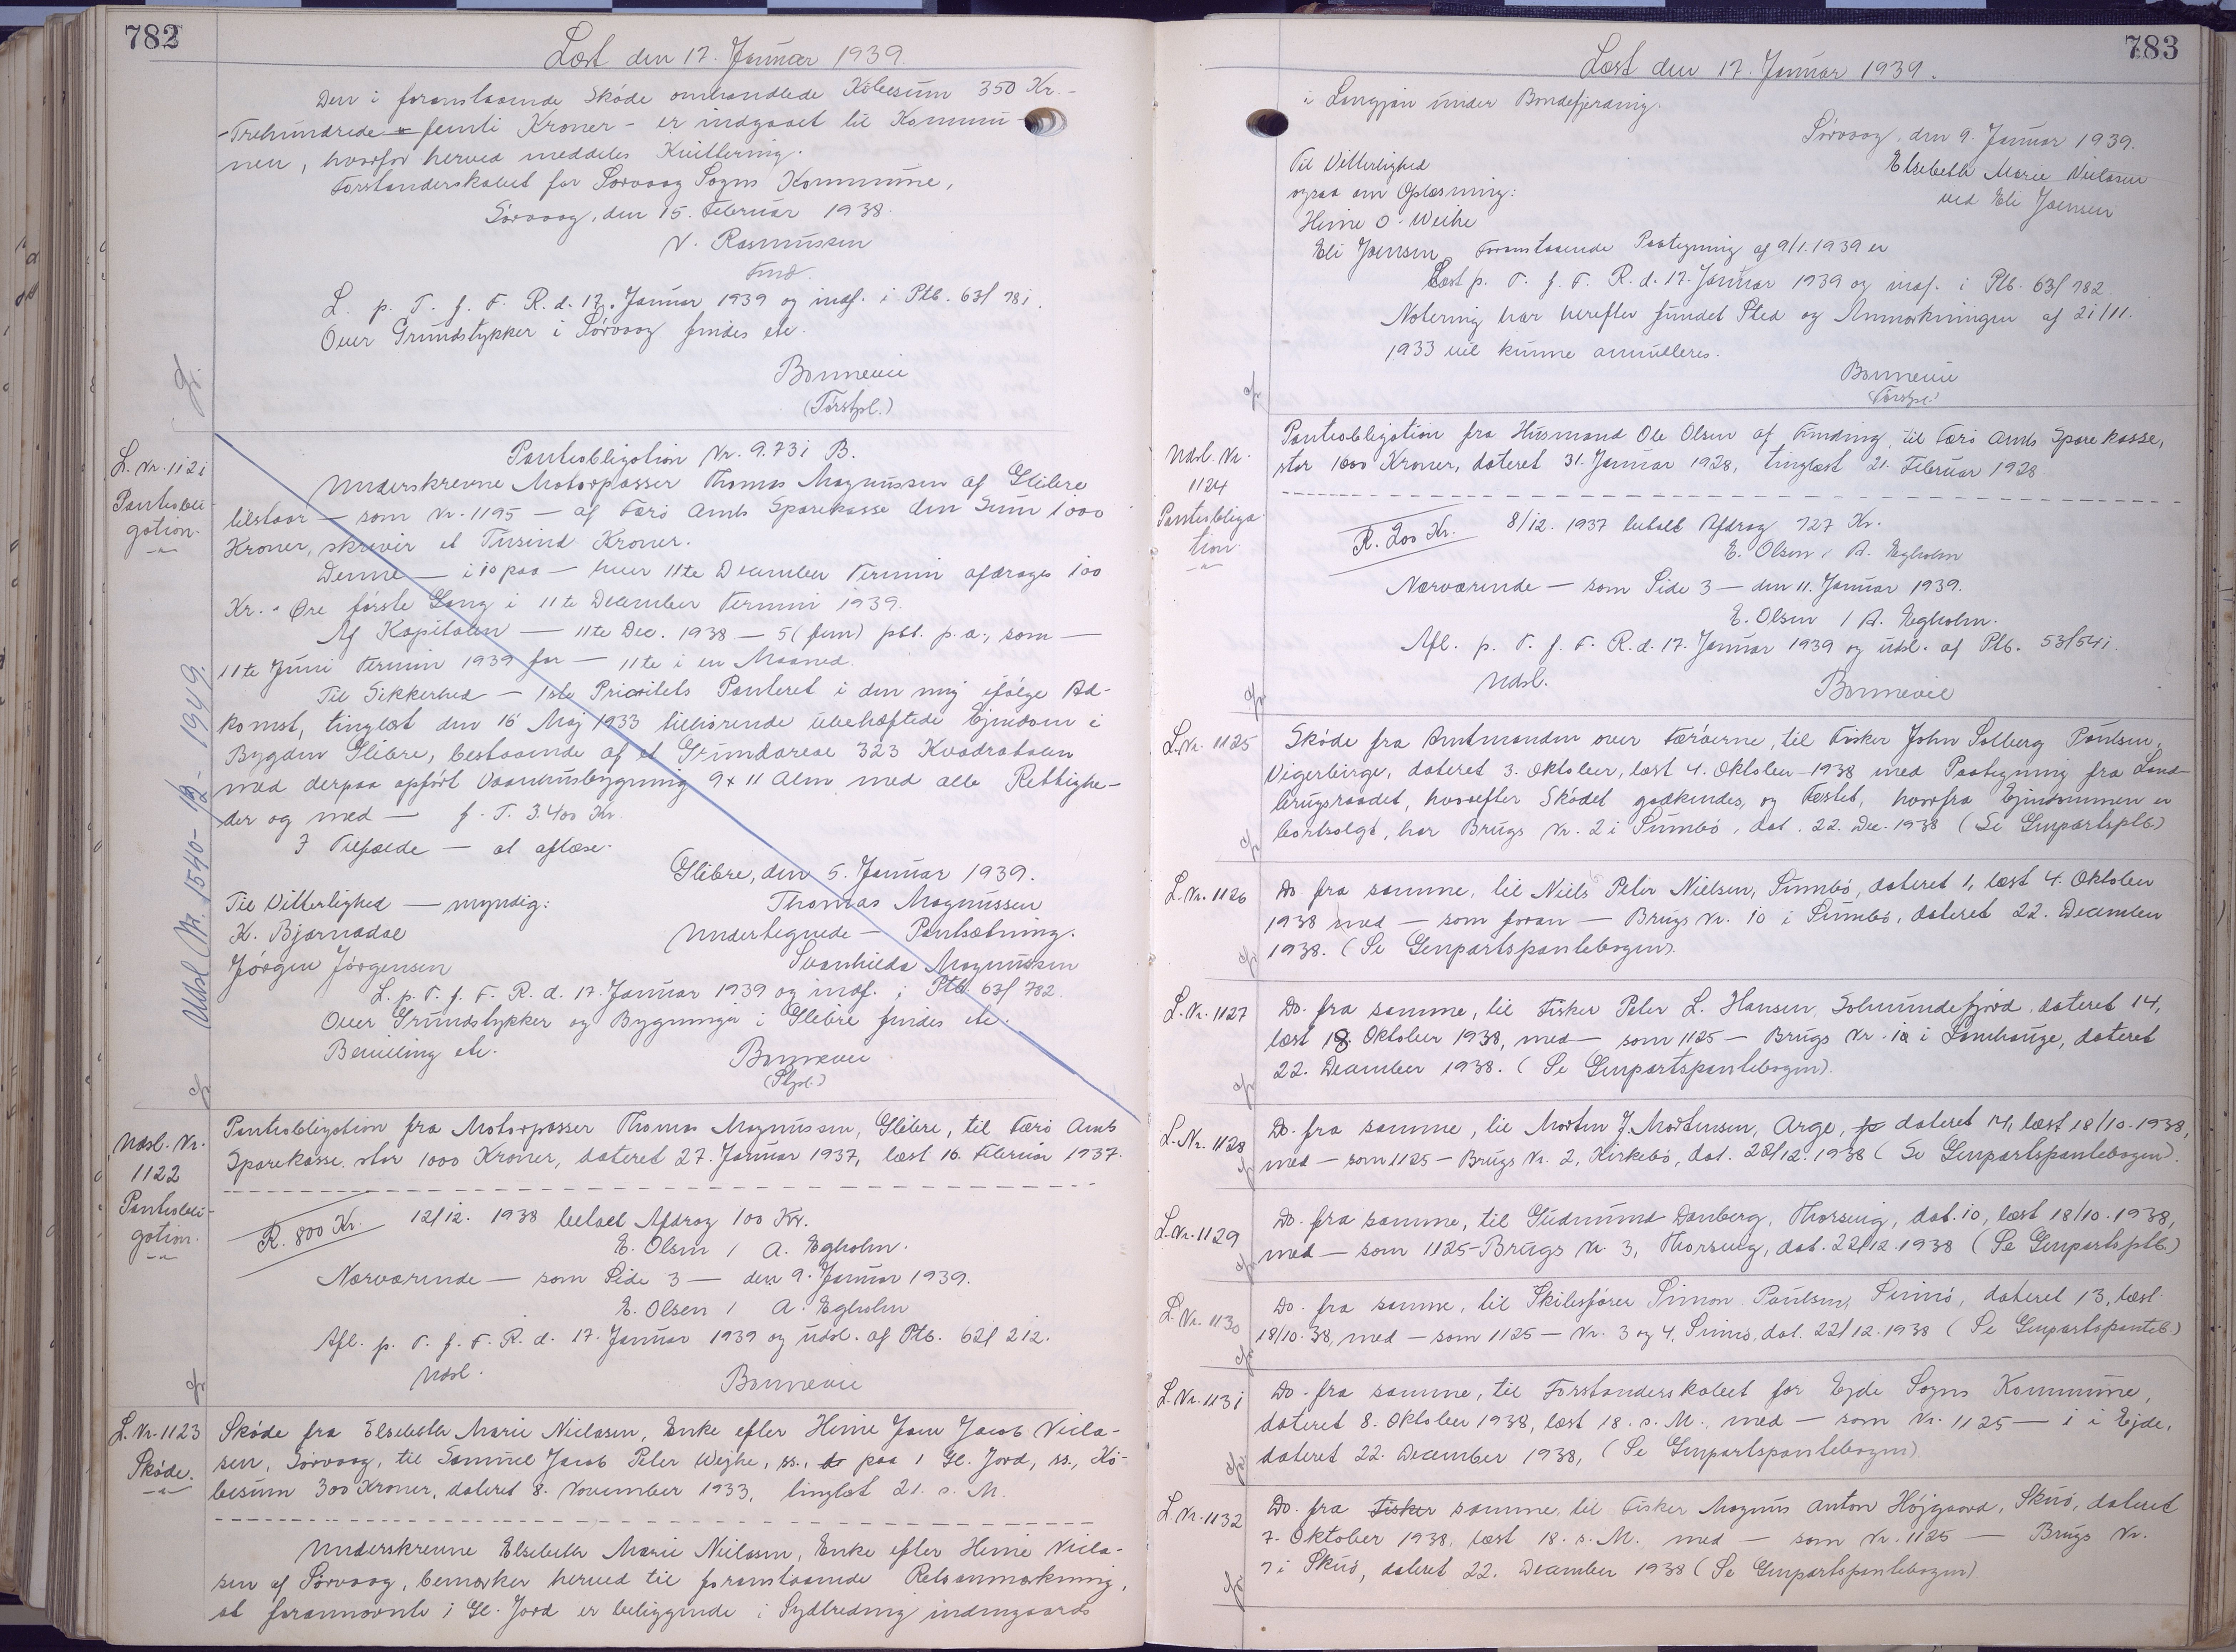 782
Læst den 17. Januar 1939.
Den i foranstaaende Skøde omhandlede Købesum 350 Kr. -
- Trehundrede femti Kroner - er indgaaet til Kommu-
nen, hvorfor herved meddeles Kvittering.
Forstanderskabet for Sørvaag Sogns Kommune,
Sørvaag, den 15. Februar 1938.
N. Rasmussen
Fmd.
L. p. T. f. F. R. d. 17. Januar 1939 og indf. i Ptb. 63/781.
Over Grundstykker i Sørvaag findes etc.
Bonnevie
(Forstpl.)
L. Nr. 1121
Pantobli-
gation.
Pantobligation Nr. 9.731 B.
Underskrevne Motorpasser Thomas Magnussen af Glibre
tilstaar — som Nr. 1195 — af Færø Amts Sparekasse den Sum 1000
Kroner, skriver et Tusind Kroner.
Denne — i 10 paa — hver 11te December Termin afdrages 100
Kr. " Øre første Gang i 11te December Termin 1939.
Af Kapitalen — 11te Dec. 1938 — 5 (fem) pct. p. a., som —
11te Juni Termin 1939 for — 11te i en Maaned.
Til Sikkerhed — 1ste Prioritets Panteret i den mig ifølge Ad-
komst, tinglæst den 16 Maj 1933 tilhørende ubehæftede Ejendom i
Bygden Glibre, bestaaende af et Grundareal 323 Kvadratalen
med derpaa opført Vaaningsbygning 9 x 11 Alen med alle Rettighe-
der og med — f. T. 3.400 Kr.
I Tilfælde — at aflæse.
Glibre, den 5. Januar 1939.
Til Vitterlighed — myndig:
Thomas Magnussen
K. Bjarnadal
Undertegnede — Pantsætning.
Jørgen Jørgensen
Svanhilda Magnussen
L. p. T. f. F. R. d. 17. Januar 1939 og indf. i Ptb. 63/782.
Over Grundstykker og Bygninger i Glibre findes etc.
Bevilling etc.
Bonnevie
(Stpl.)
Udsl. Nr. 1540 - 1949.
Udsl. Nr.
1122
Pantobli-
gation.
Pantobligation fra Motorpasser Thomas Magnussen, Glibre, til Færø Amts
Sparekasse, stor 1000 Kroner, dateret 27. Januar 1937, læst 16. Februar 1937.
R. 800 Kr.
12/12. 1938 betalt Afdrag 100 Kr.
E. Olsen / A. Egholm.
Nærværende — som Side 3 — den 9. Januar 1939.
E. Olsen / A. Egholm
Afl. p. T. f. F. R. d. 17. Januar 1939 og udsl. af Ptb. 62/212.
Udsl.
Bonnevie
L. Nr. 1123
Skøde.
Skøde fra Elsebeth Marie Nielsen, Enke efter Heine Joen Jacob Niel-
sen, Sørvaag, til Samuel Jacob Peter Wejhe, ss., paa 1 Gl. Jord, ss., Kø-
besum 300 Kroner, dateret 8. November 1933, tinglæst 21. s. M.
Underskrevne Elsebeth Marie Nielsen, Enke efter Heine Niel-
sen af Sørvaag, bemærker herved til foranstaaende Retsanmærkning,
at forannævnte 1 Gl. Jord er beliggende i Sydtreding indengaards
783
Læst den 17. Januar 1939.
i Langjan under Bondefjerding.
Sørvaag, den 9. Januar 1939.
Til Vitterlighed
Elsebeth Marie Nielsen
ogsaa om Oplæsning:
ved Eli Joensen
Heine O. Weihe
Eli Joensen
Foranstaaende Paategning af 9/1. 1939 er
Læst p. T. f. F. R. d. 17. Januar 1939 og indf. i Ptb. 63/782.
Notering har herefter fundet Sted og Anmærkningen af 21/11.
1933 vil kunne annulleres.
Bonnevie
Forstpl.
Udsl. Nr.
1124
Pantobliga-
tion.
Pantobligation fra Husmand Ole Olsen af Funding, til Færø Amts Sparekasse,
stor 1000 Kroner, dateret 31. Januar 1928, tinglæst 21. Februar 1928.
R. 200 Kr.
8/12. 1937 betalt Afdrag 127 Kr.
E. Olsen / A. Egholm
Nærværende — som Side 3 — den 11. Januar 1939.
E. Olsen / A. Egholm.
Afl. p. T. f. F. R. d. 17. Januar 1939 og udsl. af Ptb. 53/541.
Udsl.
Bonnevie
L. Nr. 1125
Skøde fra Amtmanden over Færøerne, til Fisker John Solberg Poulsen,
Vigerbirge, dateret 3. Oktober, læst 4. Oktober 1938 med Paategning fra Land-
brugsraadet, hvorefter Skødet godkendes, og Fæstet, hvorfra Ejendommen er
bortsolgt, har Brugs Nr. 2 i Sumbø, dat. 22. Dec. 1938 (Se Genpartsptb.)
L. Nr. 1126
Do. fra samme, til Niels Peter Nielsen, Sumbø, dateret 1, læst 4. Oktober
1938 med — som foran — Brugs Nr. 10 i Sumbø, dateret 22. December
1938. (Se Genpartspantebogen).
L. Nr. 1127
Do. fra samme, til Fisker Peter L. Hansen, Solmundefjord, dateret 14,
læst 18. Oktober 1938, med — som 1125 — Brugs Nr. 1a i Lamhauge, dateret
22. December 1938. (Se Genpartspantebogen).
L. Nr. 1128
Do. fra samme, til Morten J. Mortensen, Arge, dateret 14, læst 18/10. 1938,
med — som 1125 — Brugs Nr. 2, Kirkebø, dat. 22/12. 1938 (Se Genpartspantebogen).
L. Nr. 1129
Do. fra samme, til Gudmund Danberg, Thorsvig, dat. 10, læst 18/10. 1938,
med — som 1125 — Brugs Nr. 3, Thorsvig, dat. 22/12. 1938 (Se Genpartsptb.)
L. Nr. 1130
Do. fra samme, til Skibsfører Simon Poulsen, Sumø, dateret 13, læst
18/10. 38, med — som 1125 — Nr. 3 og 4, dat. 22/12. 1938 (Se Genpartspanteb.)
L. Nr. 1131
Do. fra samme, til Forstanderskabet for Ejde Sogns Kommune,
dateret 8. Oktober 1938, læst 18. s. M., med — som Nr. 1125 — 1 i Ejde,
dateret 22. December 1938, (Se Genpartspantebogen)
L. Nr. 1132
Do. fra Fisker samme, til Fisker Magnus Anton Højgaard, Skuø, dateret
7. Oktober 1938, læst 18. s. M. med — som Nr. 1125 — Brugs Nr.
7 i Skuø, dateret 22. December 1938 (Se Genpartspantebogen)